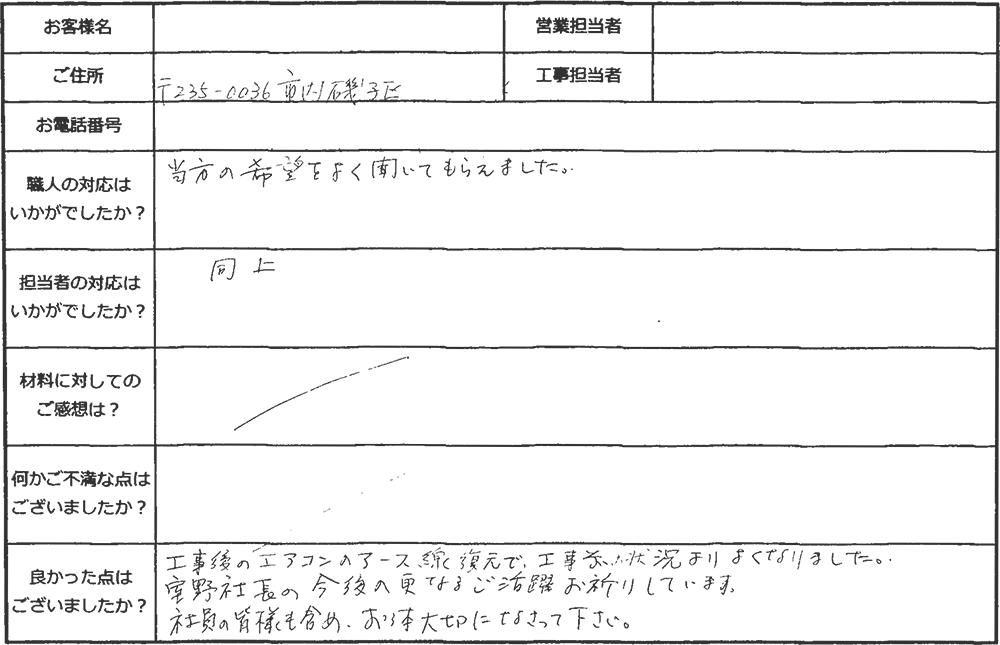 お客様名
営業担当者
ご住所
〒235-0036 市内磯子区
工事担当者
お電話番号
職人の対応は
いかがでしたか?
当方の希望をよく聞いてもらえました。
担当者の対応は
いかがでしたか?
同上
材料に対しての
ご感想は?
何かご不満な点は
ございましたか?
良かった点は
ございましたか?
工事後のエアコンのアース線復元で、工事前の状況よりよくなりました。
室野社長の今後の更なるご活躍お祈りしています。
社員の皆様も含め、お体大切になさって下さい。